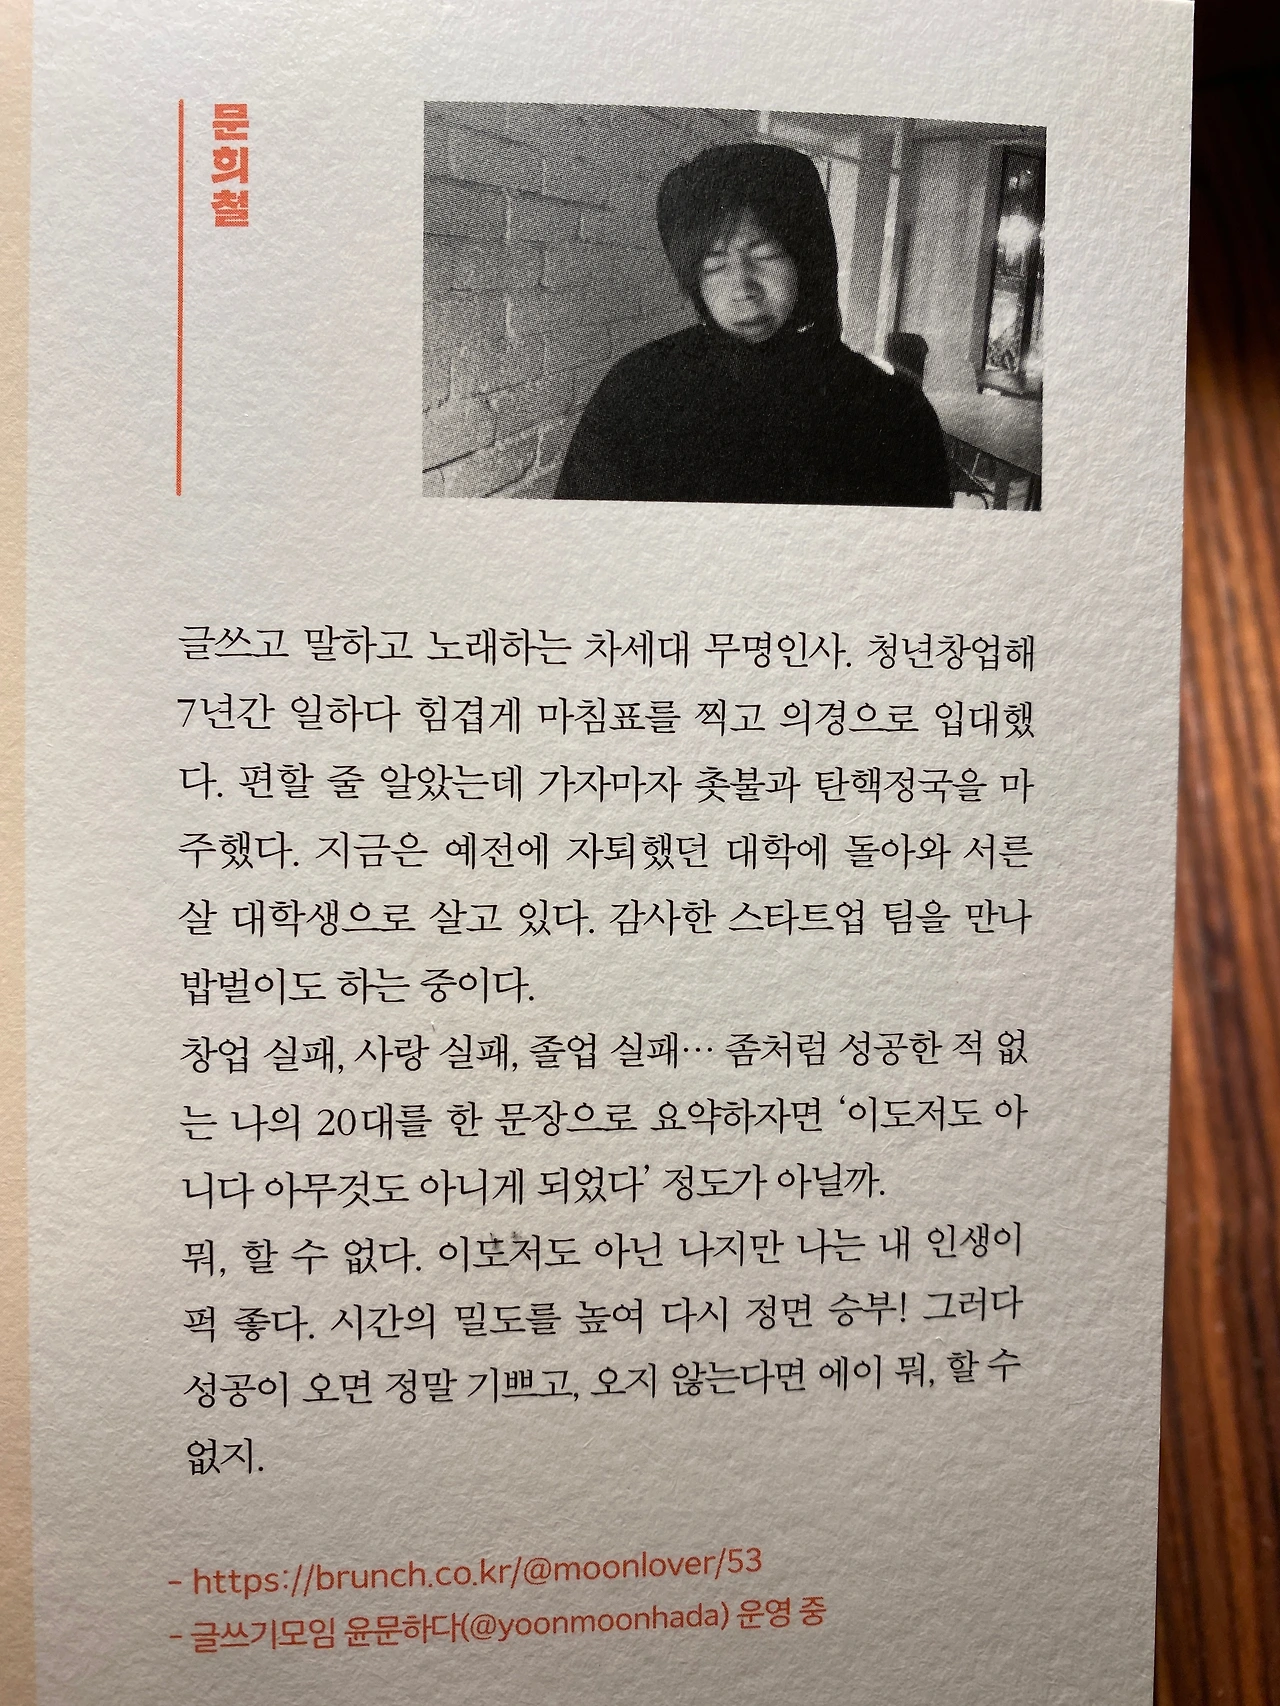 문희철
글쓰고 말하고 노래하는 차세대 무명인사. 청년창업해
7년간 일하다 힘겹게 마침표를 찍고 의경으로 입대했
다. 편할 줄 알았는데 가자마자 촛불과 탄핵정국을 마
주했다. 지금은 예전에 자퇴했던 대학에 돌아와 서른
살 대학생으로 살고 있다. 감사한 스타트업 팀을 만나
밥벌이도 하는 중이다.
창업 실패, 사랑 실패, 졸업 실패… 좀처럼 성공한 적 없
는 나의 20대를 한 문장으로 요약하자면 ‘이도저도 아
니다 아무것도 아니게 되었다’ 정도가 아닐까.
뭐, 할 수 없다. 이도저도 아닌 나지만 나는 내 인생이
퍽 좋다. 시간의 밀도를 높여 다시 정면 승부! 그러다
성공이 오면 정말 기쁘고, 오지 않는다면 에이 뭐, 할 수
없지.
- https://brunch.co.kr/@moonlover/53
- 글쓰기모임 윤문하다(@yoonmoonhada) 운영 중